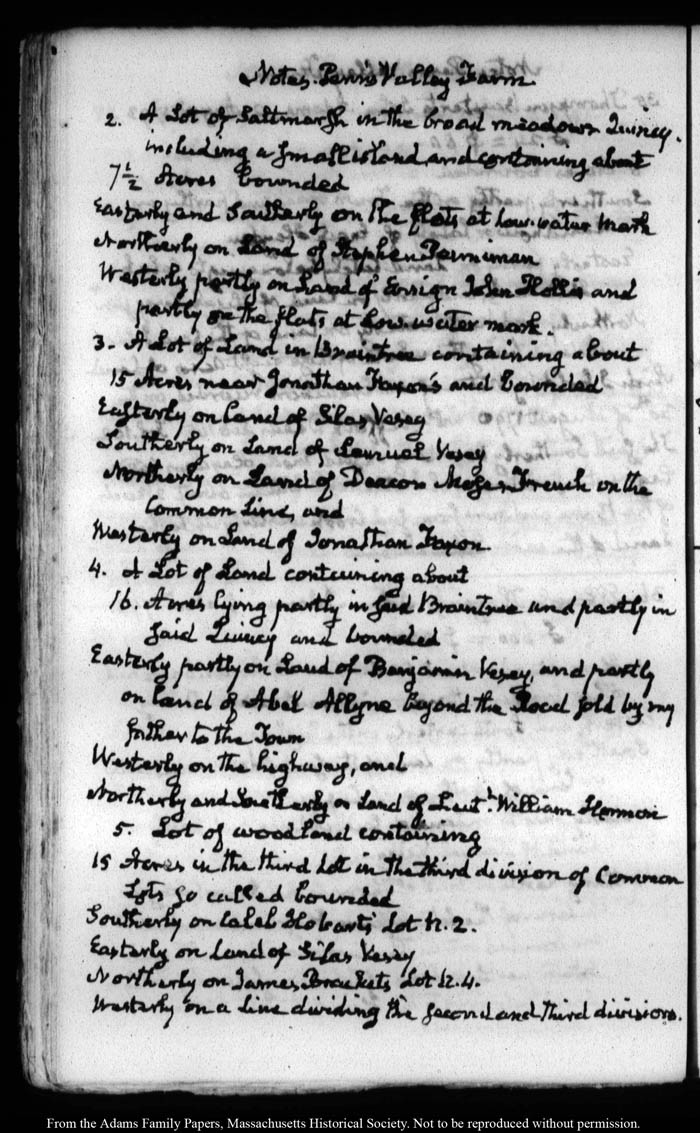 Notes. Penn's Valley Farm.
2. A Lot of Saltmarsh in the broad meadows Quincy.
including a small island, and containing about
7 1/2 Acres bounded
Easterly and Southerly on the flats at low-water mark
Northerly on Land of Stephen Penniman
Westerly partly on Land of Ensign John Hollis and
partly on the flats at low-water mark.
3. A Lot of Land in Braintree containing about
15 Acres near Jonathan Faxon's and bounded
Easterly on land of Silas Vesey
Southerly on Land of Lemuel Vesey
Northerly on Land of Deacon Moses French on the
Common Line, and
Westerly on Land of Jonathan Faxon.
4. A Lot of Land containing about
16. Acres lying partly in said Braintree and partly in
said Quincy and bounded
Easterly partly on Land of Benjamin Vesey, and partly
on land of Abel Allyne beyond the Road sold by my
father to the Town
Westerly on the highway, and
Northerly and Southerly on Land of Lieut.t William
5. Lot of woodland containing
15 Acres in the third Lot in the third division of Common
Lots so called bounded
Southerly on Caleb Hobarts Lot N. 2.
Easterly on Land of Silas Vesey
Northerly on James Brackets Lot N. 4.
Westerly on a line dividing the second and third divisions.
From the Adams Family Papers, Massachusetts Historical Society. Not to be reproduced without permission.